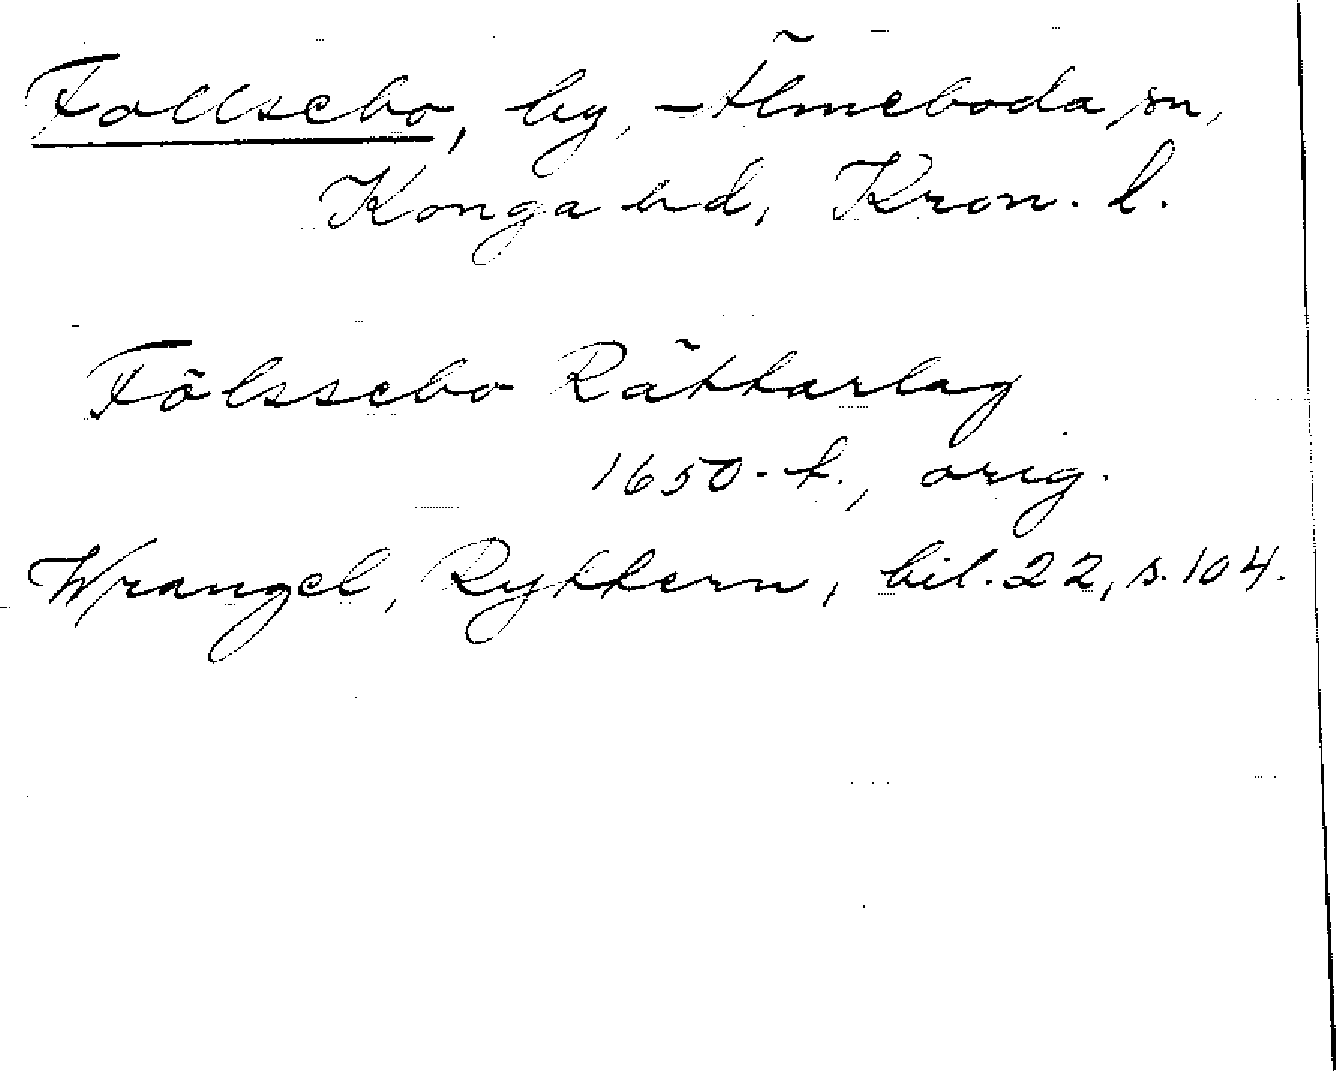 Follsebo, by, Älmeboda sn,
Konga hd, Kron. l.
Fölssebo Rättarlag
1650-t., orig.
Wrangel, Ryttern, bil. 22, s. 104.